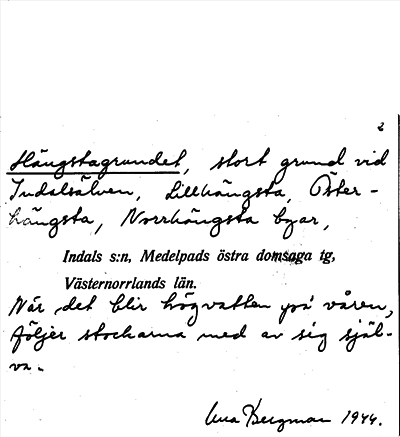 2
Hängstagrundet, stort grund vid
Indalsälven, Lillhängsta, Öster-
hängsta, Norrhängsta byar,
Indals s:n, Medelpads östra domsaga tg,
Västernorrlands län.
När det blir högvatten på våren,
följer stockarna med av sig själ-
va.
Bergman 1944.